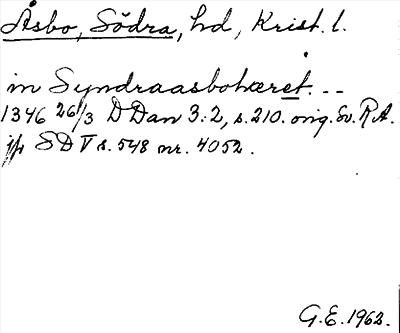 Åsbo, Södra, hd, Krist. l.
in Syndraasbohæret. - -
1346 26/3 DDan 3:2, s. 210. orig. Sv. RA.
jfr SD V s. 548 nr. 4052.
G.E. 1962.